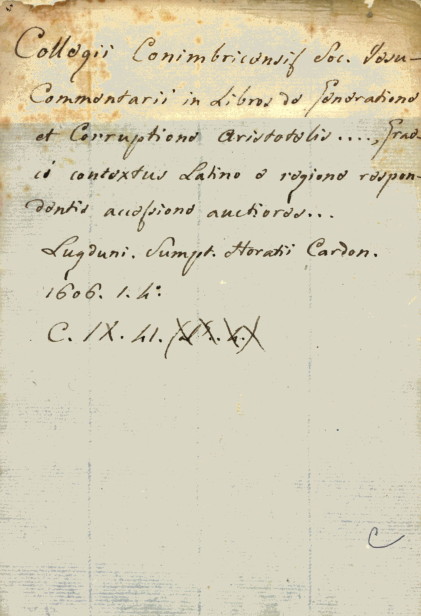 Collegii Conimbricensis Soc. Jesu-
Commentarii in Libros de Generatione
et Corruptione Aristotelis...., Grae-
ci contextus Latino e regione respon-
dentis accessione auctiores...
Lugduni. Sumpt. Horatii Cardon.
1606. 1. 4°.
C. IX. 41.
C